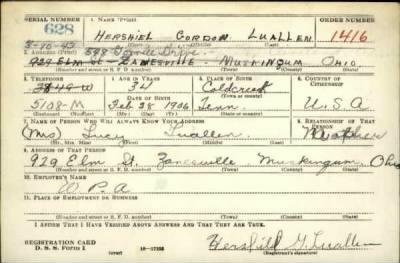 SERIAL NUMBER 1. NAME (Print) ORDER NUMBER
628 HERSHIEL GORDON LUALLEN 1416
(First) (Middle) (Last)
3-10-43 598
2. ADDRESS (Print)
929 ELM ST - ZANESVILLE - MUSKINGUM OHIO
(Number and street or R. F. D. number) (Town) (County) (State)
3. TELEPHONE 4. AGE IN YEARS 5. PLACE OF BIRTH 6. COUNTRY OF CITIZENSHIP
34 Coldcreek
5108-M DATE OF BIRTH (Town or county)
Feb 28 1906 Tenn. U.S.A
(Exchange) (No.) (Mo.) (Day) (Yr.) (State or country)
7. NAME OF PERSON WHO WILL ALWAYS KNOW YOUR ADDRESS 8. RELATIONSHIP OF THAT PERSON
(Mrs) Lucy Luallen Mother
(Mr., Mrs., Miss) (First) (Middle) (Last)
9. ADDRESS OF THAT PERSON
929 Elm St. Zanesville Muskingum Ohio
(Number and street or R. F. D. number) (Town) (County) (State)
10. EMPLOYER'S NAME
W. P. A
11. PLACE OF EMPLOYMENT OR BUSINESS
(Number and street or R. F. D. number) (Town) (County) (State)
I AFFIRM THAT I HAVE VERIFIED ABOVE ANSWERS AND THAT THEY ARE TRUE.
REGISTRATION CARD
D. S. S. Form 1 16-17105 Hershiel G. Luallen
(Registrant's signature)